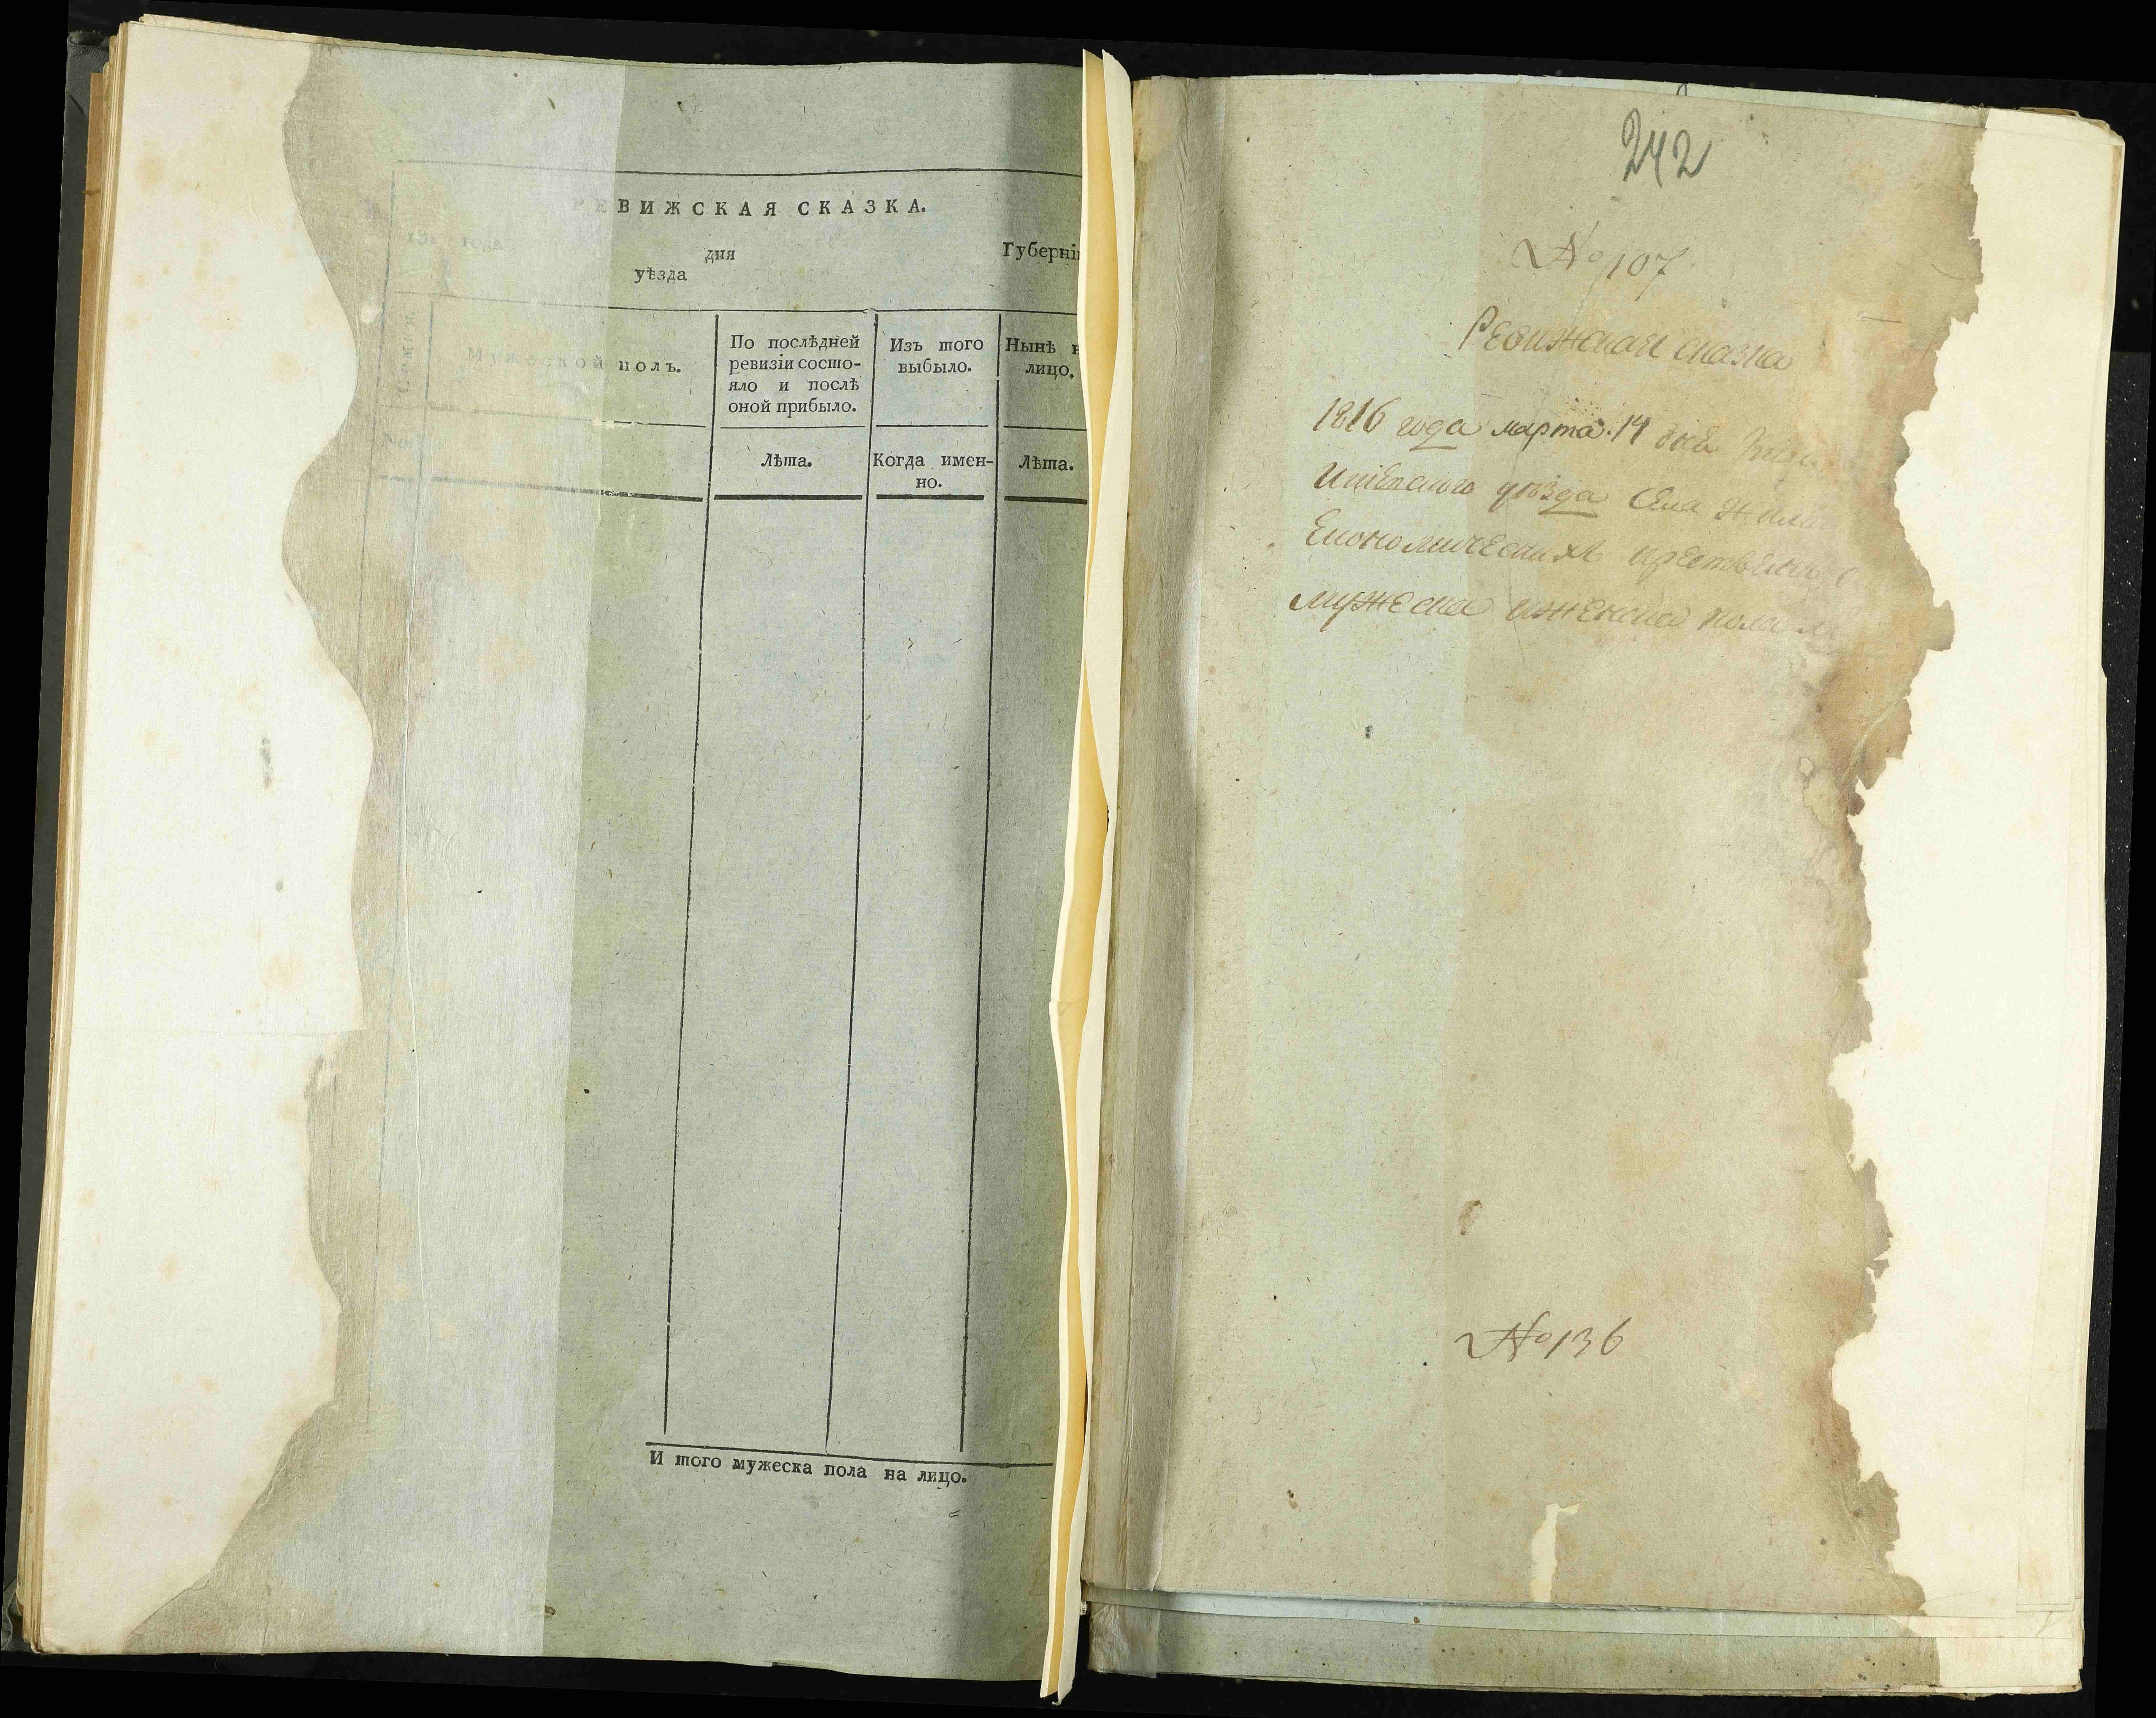 РЕВИЖСКАЯ СКАЗКА.
года дня Губерні
уѣзда
Мужеской полъ.
По послѣдней
ревизіи состо-
яло и послѣ
оной прибыло.
Изъ того
выбыло.
Нынѣ н
лицо.
Лѣта.
Когда имен-
но.
Лѣта.
И того мужеска пола на лицо.
242
№ 107
Ревижская сказка
1816 года марта 14 дня
уѣзда Села
Економическихъ
мужеска и женска пола
№ 136